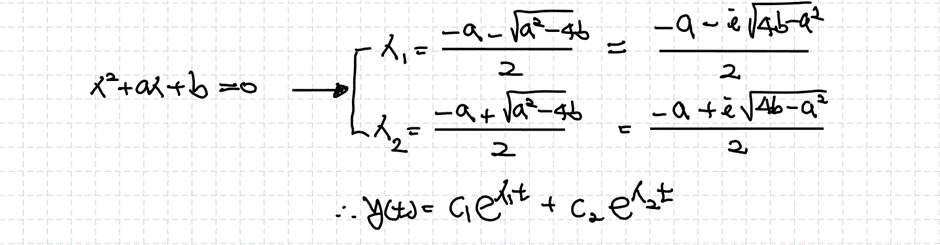 λ² + aλ + b = 0 → λ₁ = (-a - √(a² - 4b))/2 = (-a - i√(4b - a²))/2
λ₂ = (-a + √(a² - 4b))/2 = (-a + i√(4b - a²))/2
∴ y(t) = c₁e^{λ₁t} + c₂e^{λ₂t}